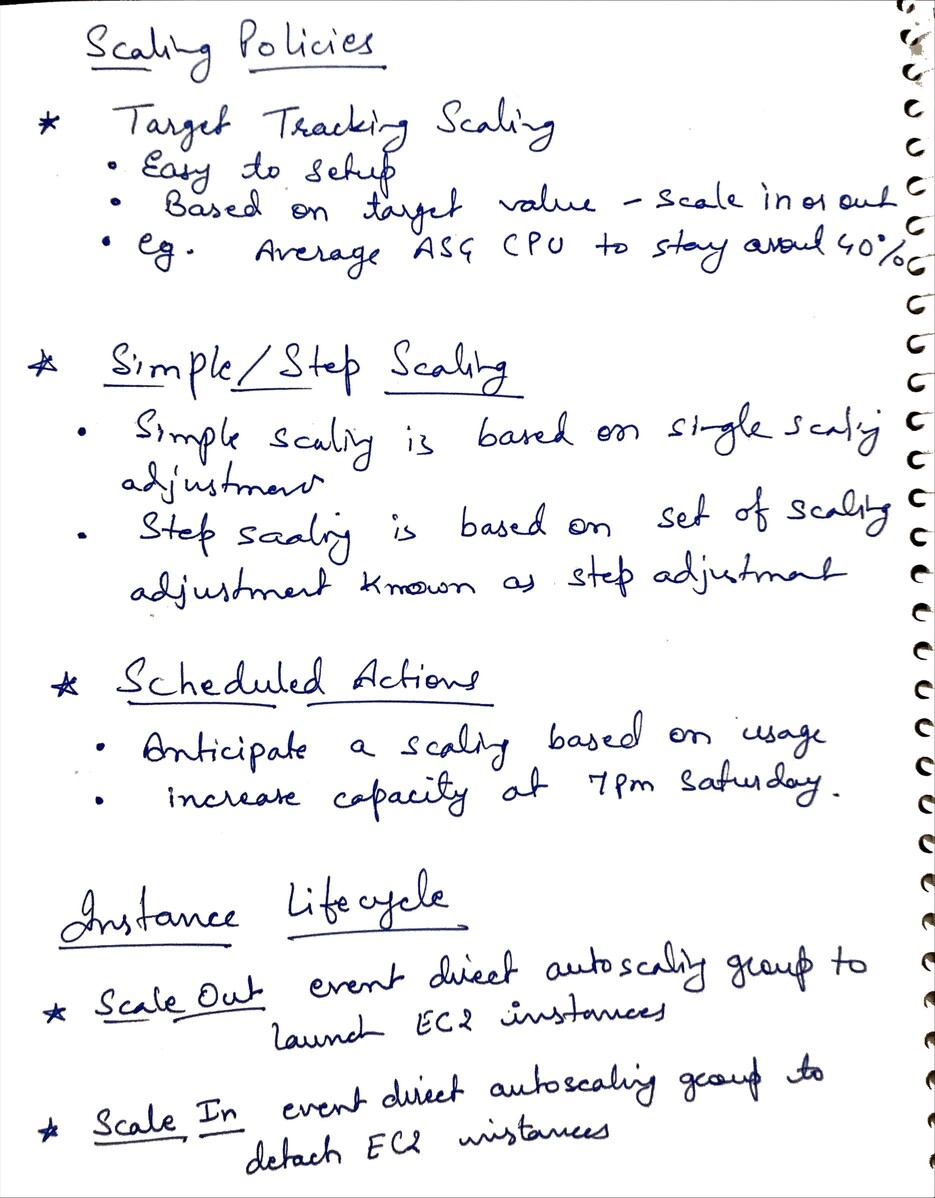 Scaling Policies
* Target Tracking Scaling
• Easy to setup
• Based on target value - scale in or out
• eg. Average ASG CPU to stay around 40%
* Simple/Step Scaling
• Simple scaling is based on single scaling
adjustment
• Step scaling is based on set of scaling
adjustment known as step adjustment
* Scheduled Actions
• Anticipate a scaling based on usage
• increase capacity at 7pm Saturday.
Instance Lifecycle
* Scale Out event direct autoscaling group to
launch EC2 instances
* Scale In event direct autoscaling group to
detach EC2 instances